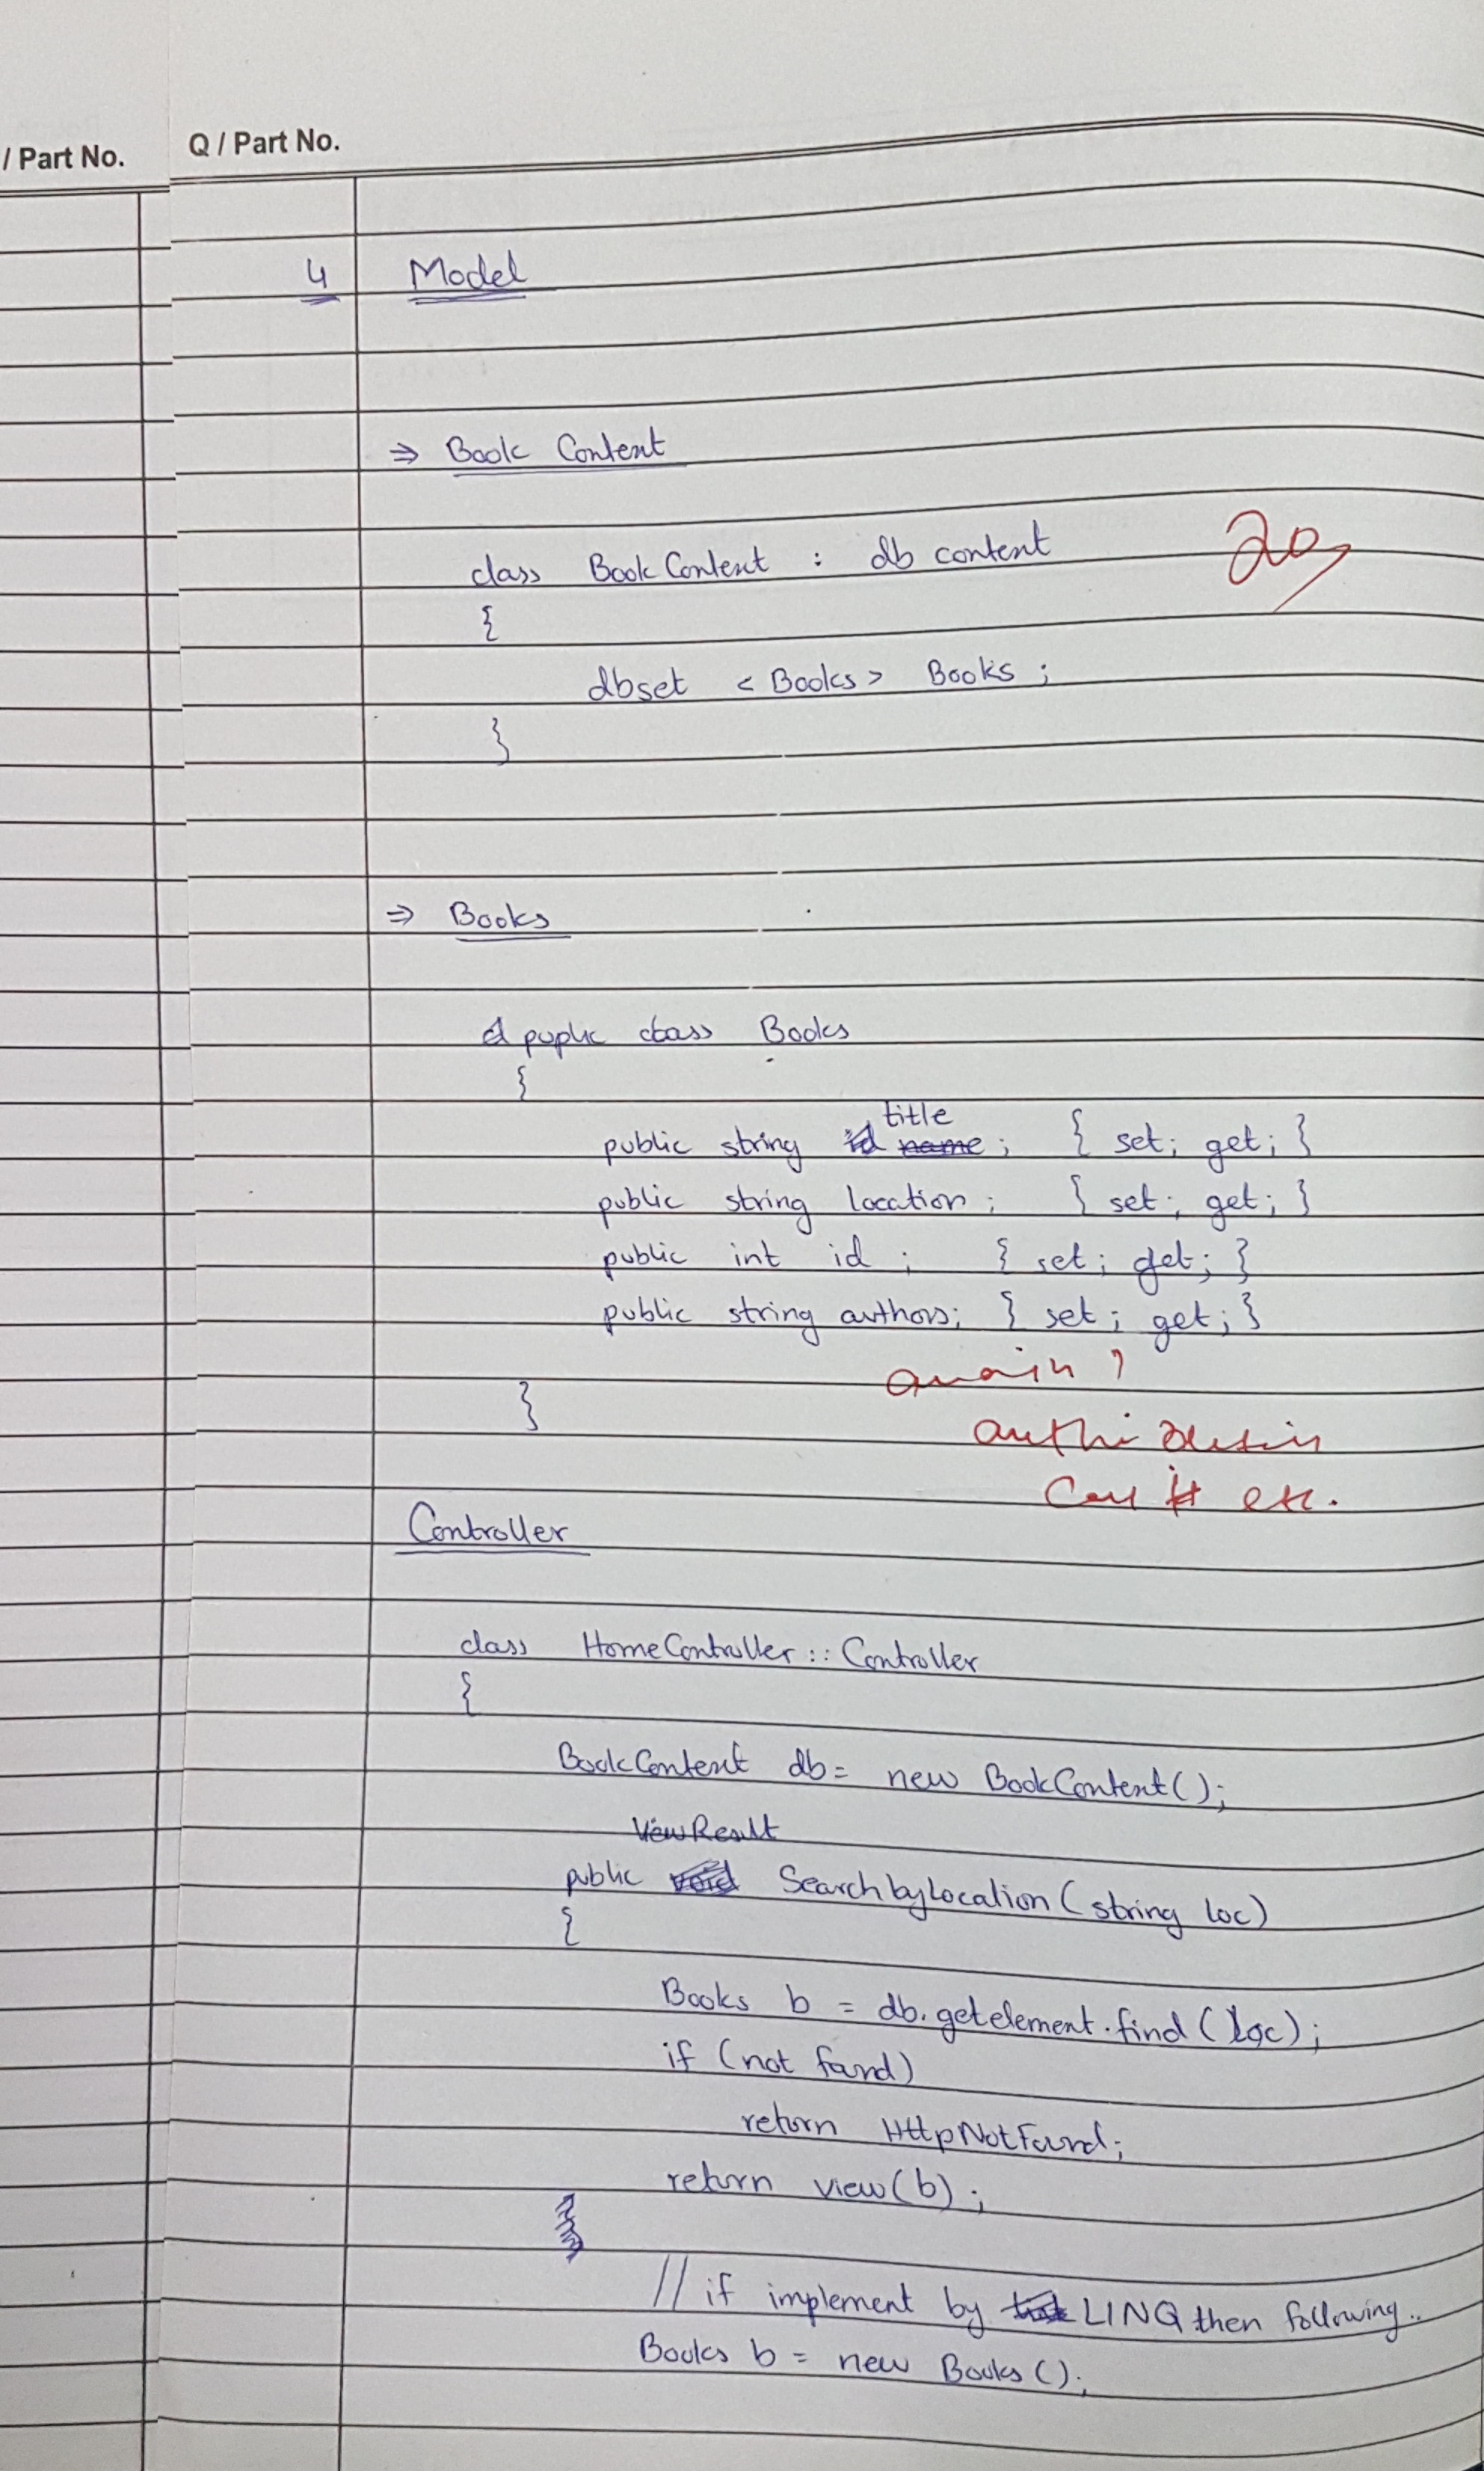 / Part No.
Q / Part No.
4 Model
⇒ Book Content
class BookContent : db content
20
{
dbset < Books > Books ;
}
⇒ Books
puplic class Books
{
title
public string id name ; { set; get; }
public string location ; { set; get; }
public int id ; { set; get; }
public string authors; { set; get; }
}
etc.
Controller
class HomeController :: Controller
{
BookContent db = new BookContent();
ViewResult
public void SearchbyLocation (string loc)
{
Books b = db.getelement.find (loc);
if (not found)
return HttpNotFound;
return view(b);
// if implement by LINQ then following..
Books b = new Books ();